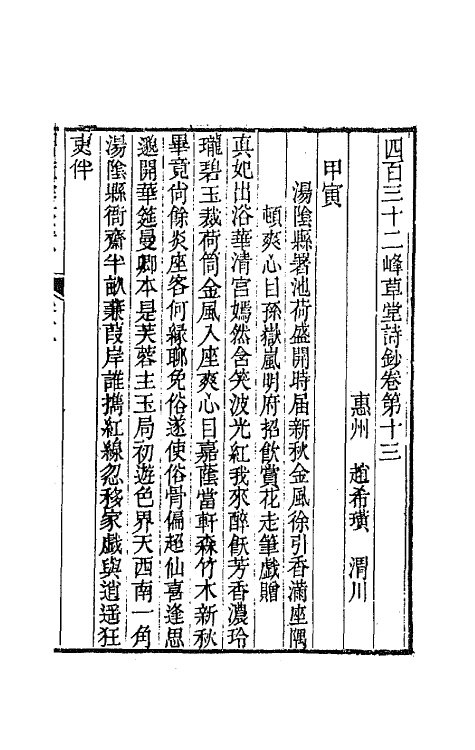 四百三十二峰草堂詩鈔卷第十三
惠州　趙希璜　渭川
甲寅
湯陰縣署池荷盛開時届新秋金風徐引香滿座隅
頓爽心目孫嶽嵐明府招飲賞花走筆戲贈
眞妃出浴華清宮嫣然含笑波光紅我來醉飲芳香濃玲
瓏碧玉裁荷筒金風入座爽心目嘉蔭當軒森竹木新秋
畢竟尙餘炎座客何緣聊免俗遂使俗骨偏超仙喜逢思
邈開華筵曼卿本是芙蓉主玉局初遊色界天西南一角
湯陰縣衙齋半畝蒹葭岸誰攜紅線忽移家戲與逍遥狂
吏伴